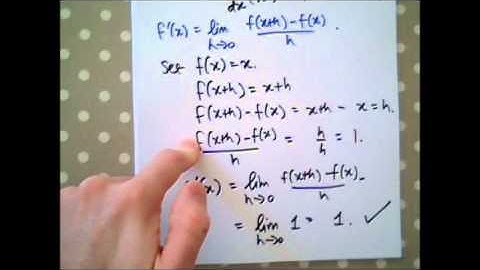 dx
f'(x) = lim h→0 f(x+h) - f(x) / h .
Set f(x) = x.
f(x+h) = x+h
f(x+h) - f(x) = x+h - x = h.
f(x+h) - f(x) / h = h / h = 1.
'(x) = lim h→0 f(x+h) - f(x) / h
= lim h→0 1 = 1. ✓